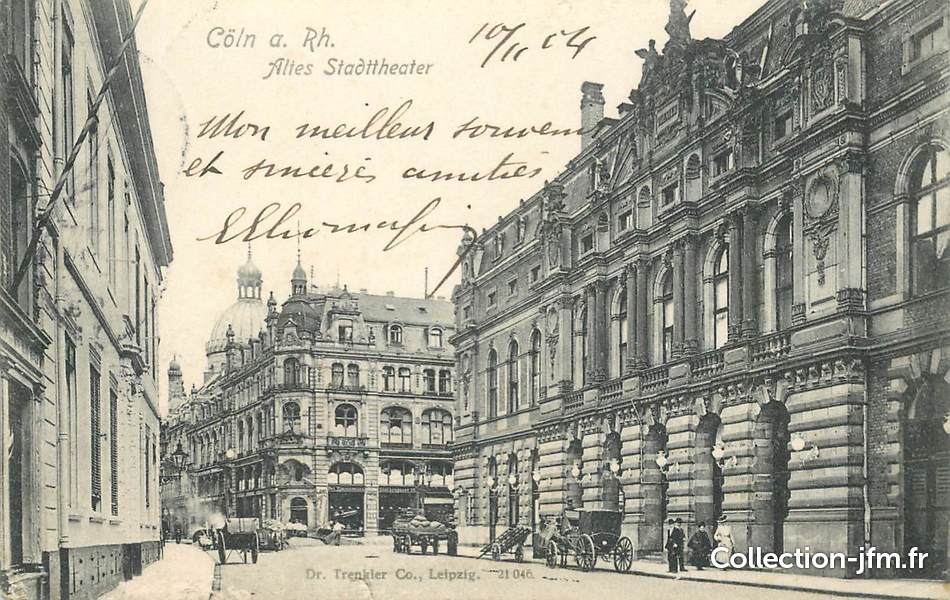 Cöln a. Rh.
Altes Stadttheater
10/11 04
Mon meilleur souvenir
et sincères amitiés
Dr. Trenkler Co., Leipzig. 21 046.
Collection-jfm.fr